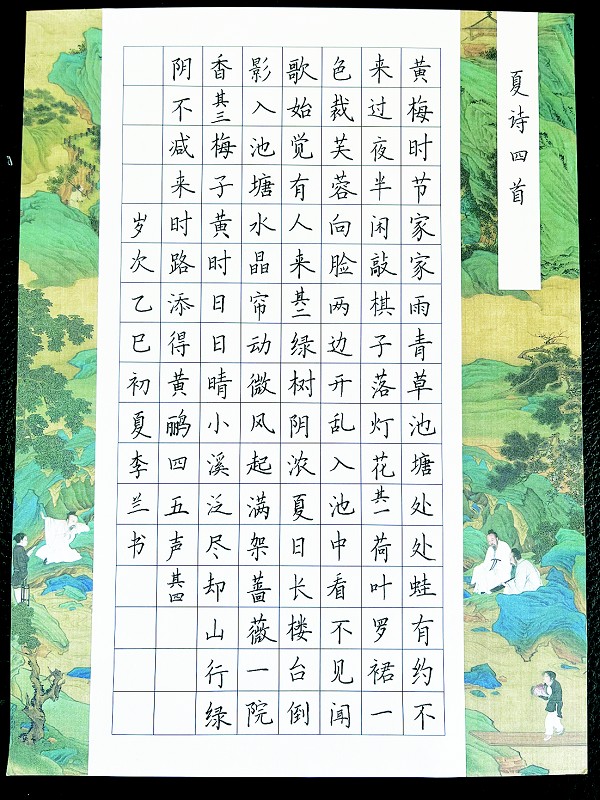 夏诗四首
黄梅时节家家雨青草池塘处处蛙有约不
来过夜半闲敲棋子落灯花其一荷叶罗裙一
色裁芙蓉向脸两边开乱入池中看不见闻
歌始觉有人来其二绿树阴浓夏日长楼台倒
影入池塘水晶帘动微风起满架蔷薇一院
香其三梅子黄时日日晴小溪泛尽却山行绿
阴不减来时路添得黄鹂四五声其四
岁次乙巳初夏李兰书